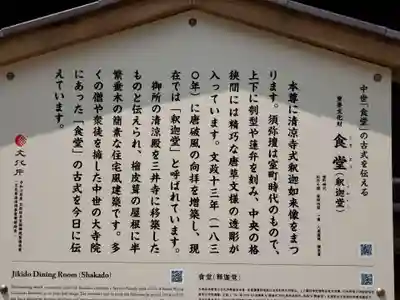 中世「食堂」の古式を伝える
重要文化財
食堂（釈迦堂）
本尊に清凉寺式釈迦如来像をまつ
ります。須弥壇は室町時代のもので、
上下に刳型や蓮弁を刻み、中央の格
狭間には精巧な唐草文様の透彫が
入っています。文政十三年（一八三
〇年）に唐破風の向拝を増築し、現
在では「釈迦堂」と呼ばれています。
御所の清涼殿を三井寺に移築した
ものと伝えられ、檜皮葺の屋根に半
繁垂木の簡素な住宅風建築です。多
くの僧や衆徒を擁した中世の大寺院
にあった「食堂」の古式を今日に伝
えています。
文化庁
Jikido Dining Room (Shakado)
食堂(释迦堂)